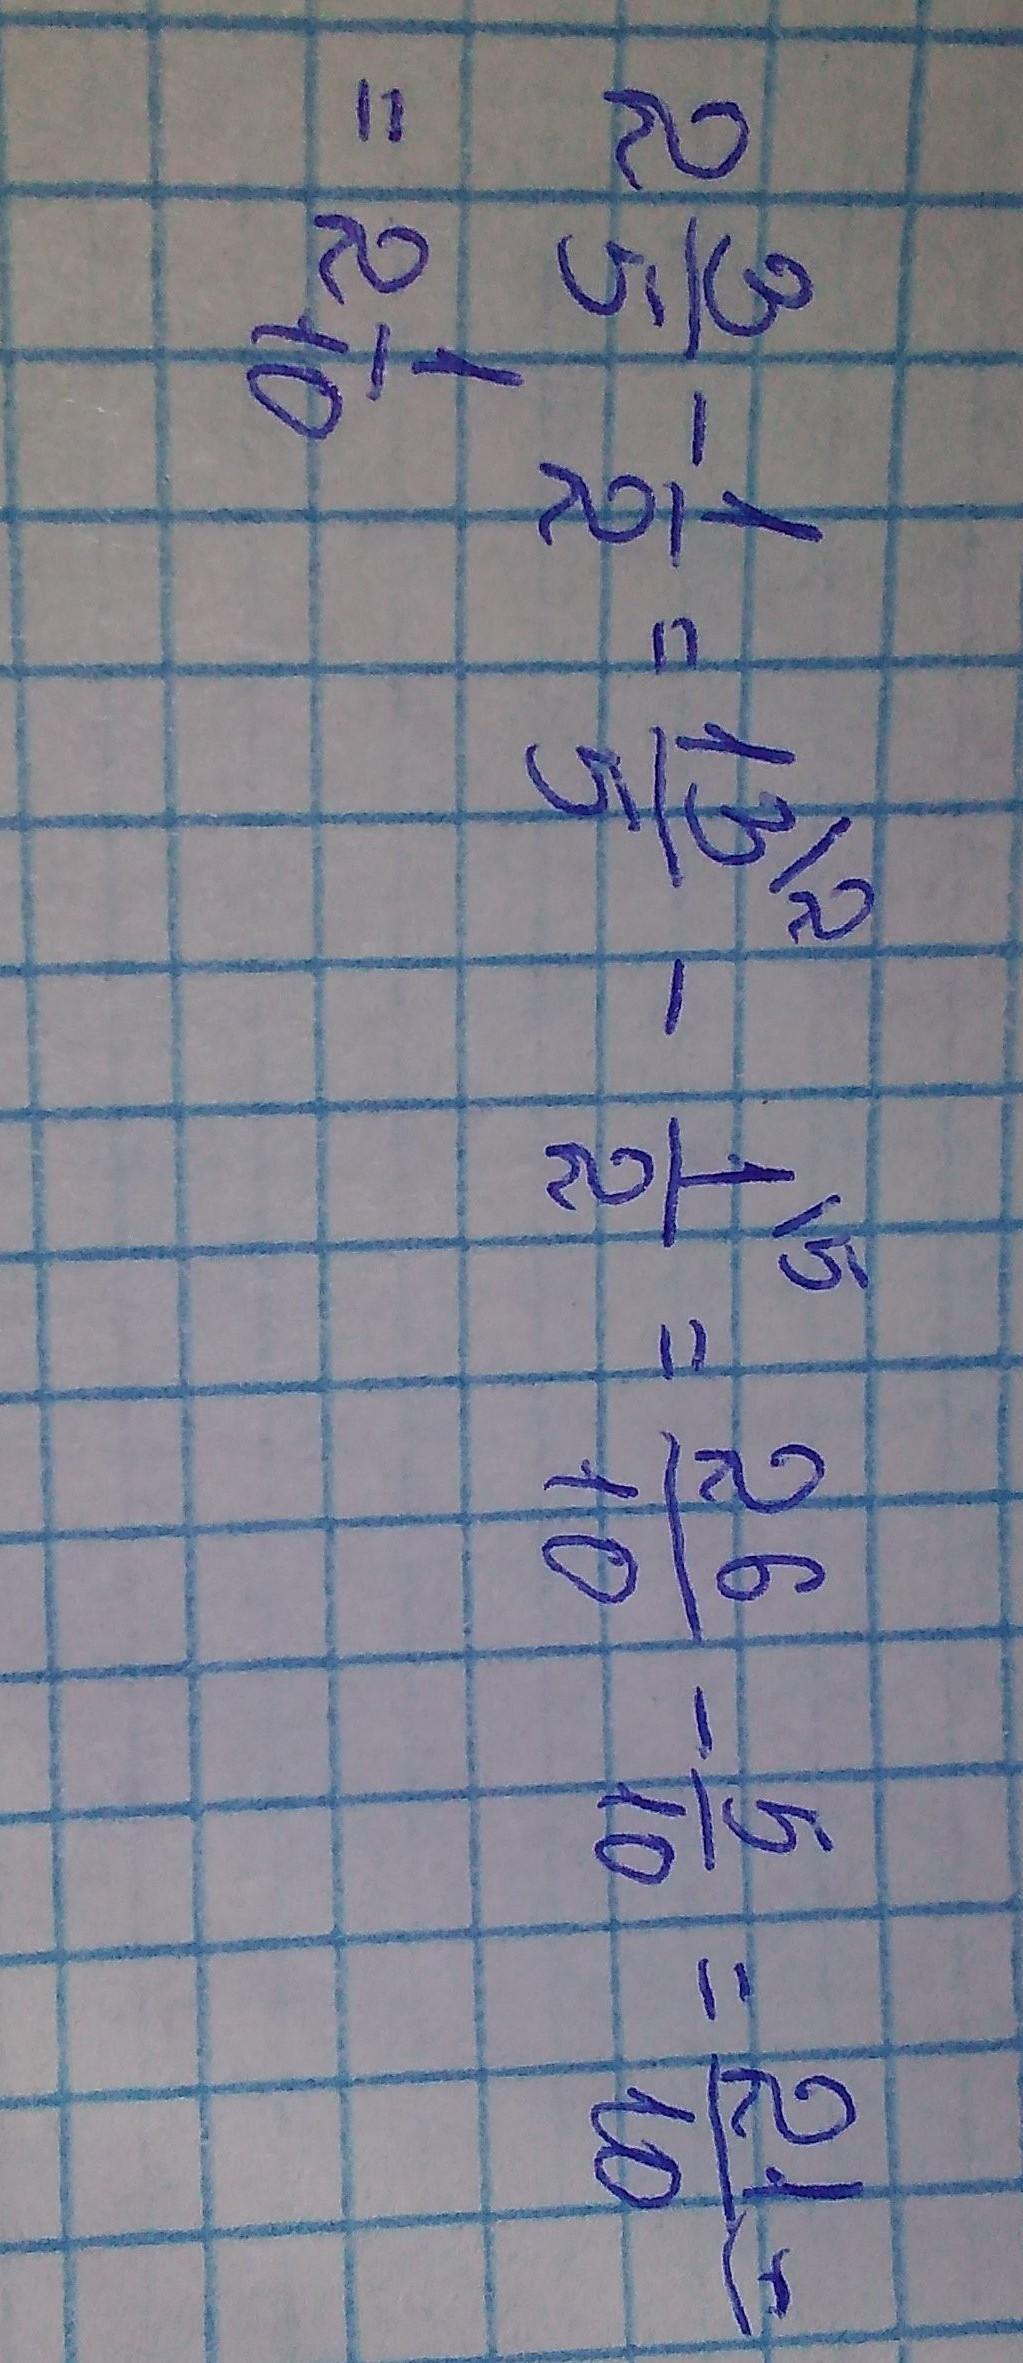 2 3/5 - 1/2 = 13\2/5 - 1\5/2 = 26/10 - 5/10 = 21/10
= 2 1/10